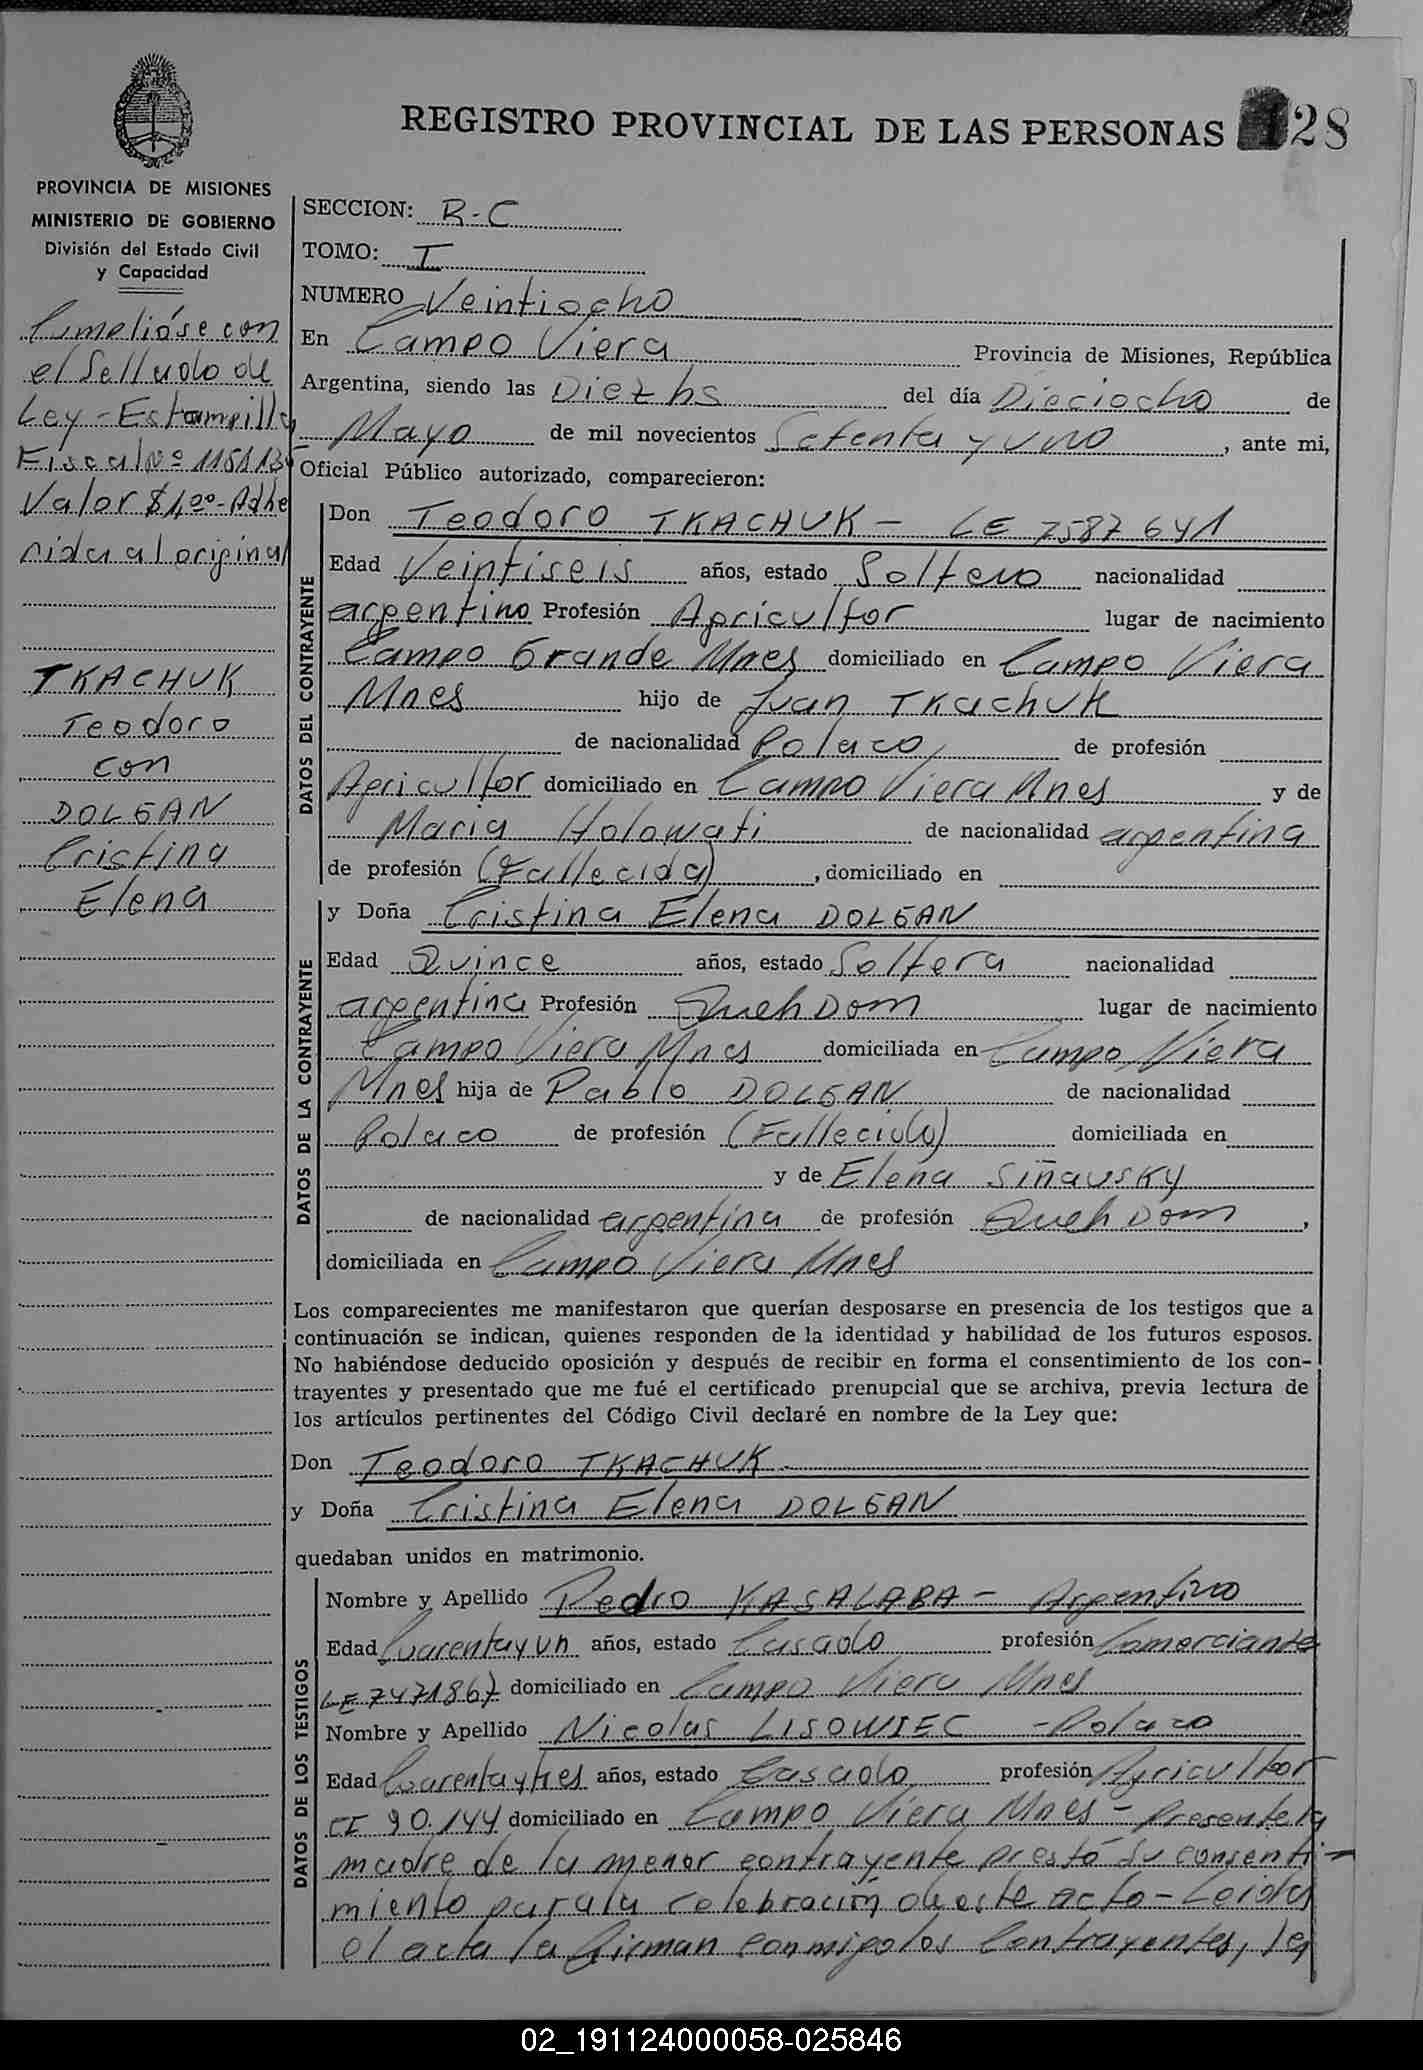 REGISTRO PROVINCIAL DE LAS PERSONAS 128
PROVINCIA DE MISIONES
MINISTERIO DE GOBIERNO
División del Estado Civil
y Capacidad
Cumplióse con
el Sellado de
Ley - Estampilla
Fiscal Nº 115113
Valor $1,00 - Adhe
rida al original
TKACHUK
Teodoro
con
DOLGAN
Cristina
Elena
SECCION: R-C
TOMO: I
NUMERO Veintiocho
En Campo Viera Provincia de Misiones, República
Argentina, siendo las Diez hs del día Dieciocho de
Mayo de mil novecientos Setenta y uno, ante mi,
Oficial Público autorizado, comparecieron:
DATOS DEL CONTRAYENTE
Don Teodoro TKACHUK - LE 7587641
Edad Veintiseis años, estado Soltero nacionalidad
argentino Profesión Agricultor lugar de nacimiento
Campo Grande Mnes domiciliado en Campo Viera
Mnes hijo de Juan TKachuk
de nacionalidad Polaco, de profesión
Agricultor domiciliado en Campo Viera Mnes y de
Maria Holowati de nacionalidad argentina
de profesión (Fallecida), domiciliado en
DATOS DE LA CONTRAYENTE
y Doña Cristina Elena DOLGAN
Edad Quince años, estado Soltera nacionalidad
argentina Profesión Queh Dom lugar de nacimiento
Campo Viera Mnes domiciliada en Campo Viera
Mnes hija de Pablo DOLGAN de nacionalidad
Polaco de profesión (Fallecido) domiciliada en
y de Elena Siñausky
de nacionalidad argentina de profesión Queh Dom,
domiciliada en Campo Viera Mnes
Los comparecientes me manifestaron que querían desposarse en presencia de los testigos que a
continuación se indican, quienes responden de la identidad y habilidad de los futuros esposos.
No habiéndose deducido oposición y después de recibir en forma el consentimiento de los con-
trayentes y presentado que me fué el certificado prenupcial que se archiva, previa lectura de
los artículos pertinentes del Código Civil declaré en nombre de la Ley que:
Don Teodoro TKACHUK -
y Doña Cristina Elena DOLGAN
quedaban unidos en matrimonio.
DATOS DE LOS TESTIGOS
Nombre y Apellido Pedro KASALABA - Argentino
Edad Cuarenta y un años, estado Casado profesión Comerciante
LE 7471867 domiciliado en Campo Viera Mnes
Nombre y Apellido Nicolas LISOWIEC - Polaco
Edad Cuarenta y tres años, estado Casado profesión Agricultor
CI 90.144 domiciliado en Campo Viera Mnes - Presente la
madre de la menor contrayente prestó su consenti-
miento para la celebración de este acto - Leida
el acta la firman conmigo los Contrayentes, la
02_191124000058-025846